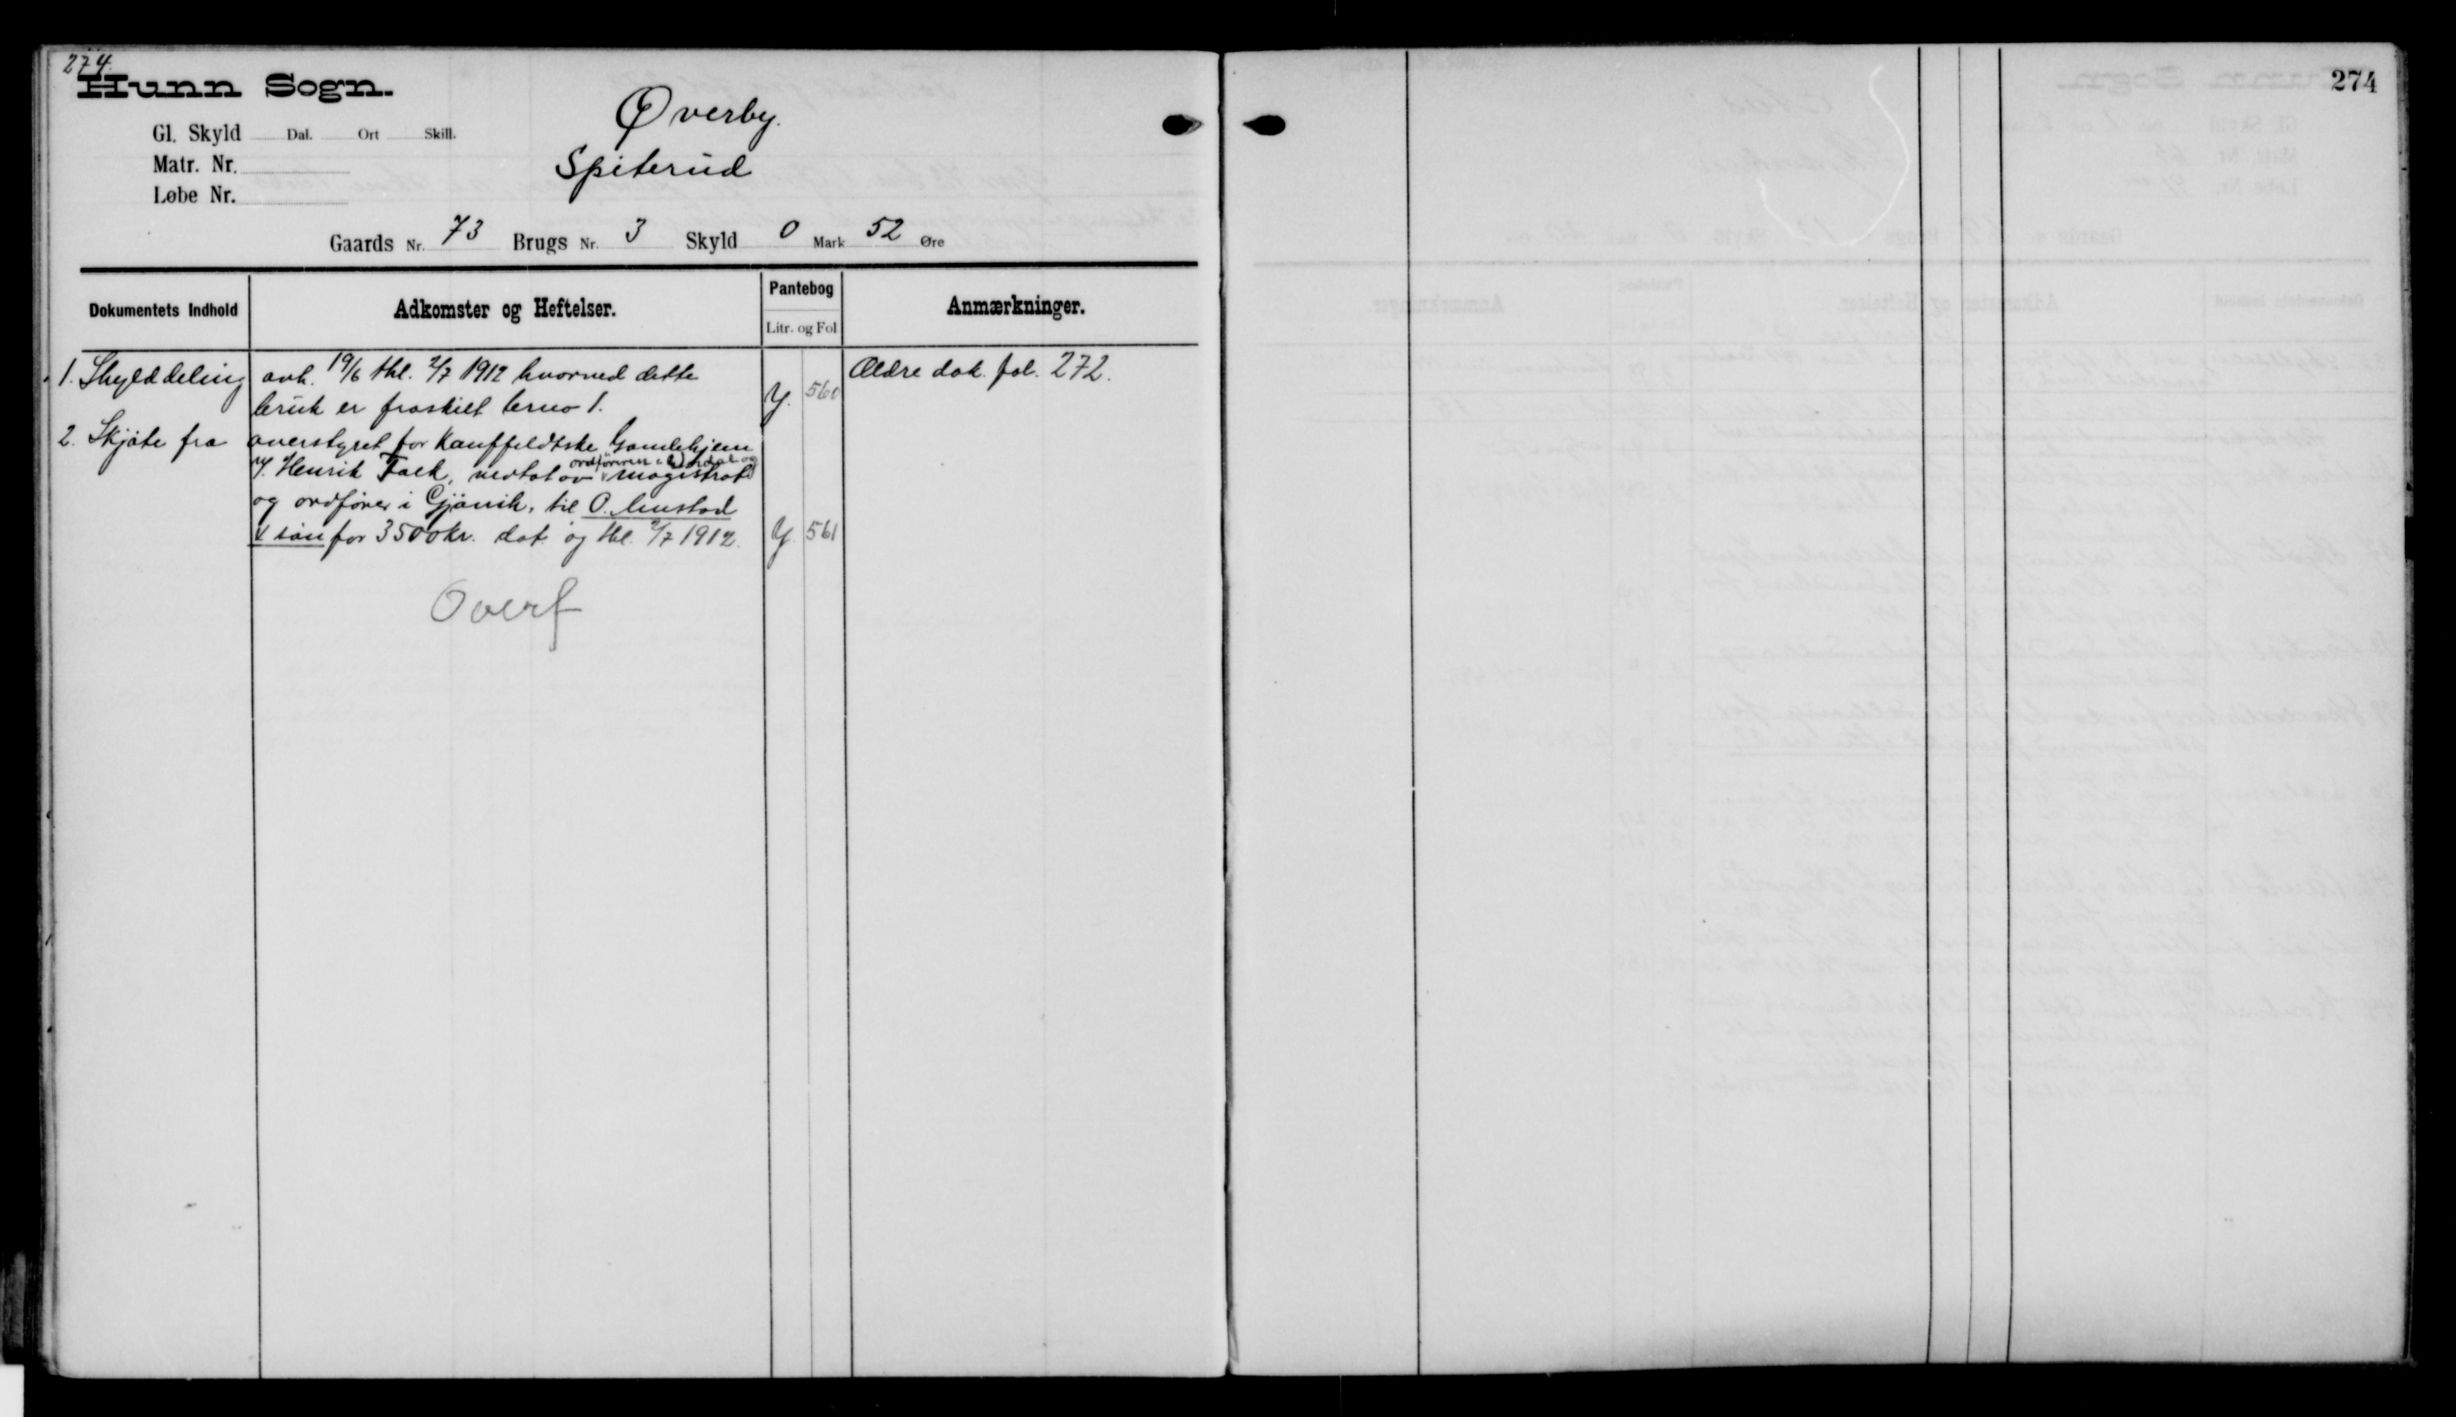 274.
Hunn Sogn.
274
Øverby.
Gl. Skyld Dal. Ort Skill.
Spiterud
Matr. Nr.
Løbe Nr.
Gaards Nr. 73 Brugs Nr. 3 Skyld 0 Mark 52 Øre
Dokumentets Indhold Adkomster og Heftelser. Pantebog Anmærkninger.
Litr. og Fol
1. Skylddeling avh. 19/6 thl. 2/7 1912 hvorved dette Y. 560 Ældre dok. fol. 272.
bruk er fraskilt brno 1.
2. Skjøte fra overstyret for Kauffeldtske Gamlehjem
v/. Henrik Falck, vedtat av magistrat
ordføreren i og
og ordfører i Gjøvik, til O. Mustad
& søn for 3500 kr. dat. og thl. 2/7 1912. Y. 561
Overf